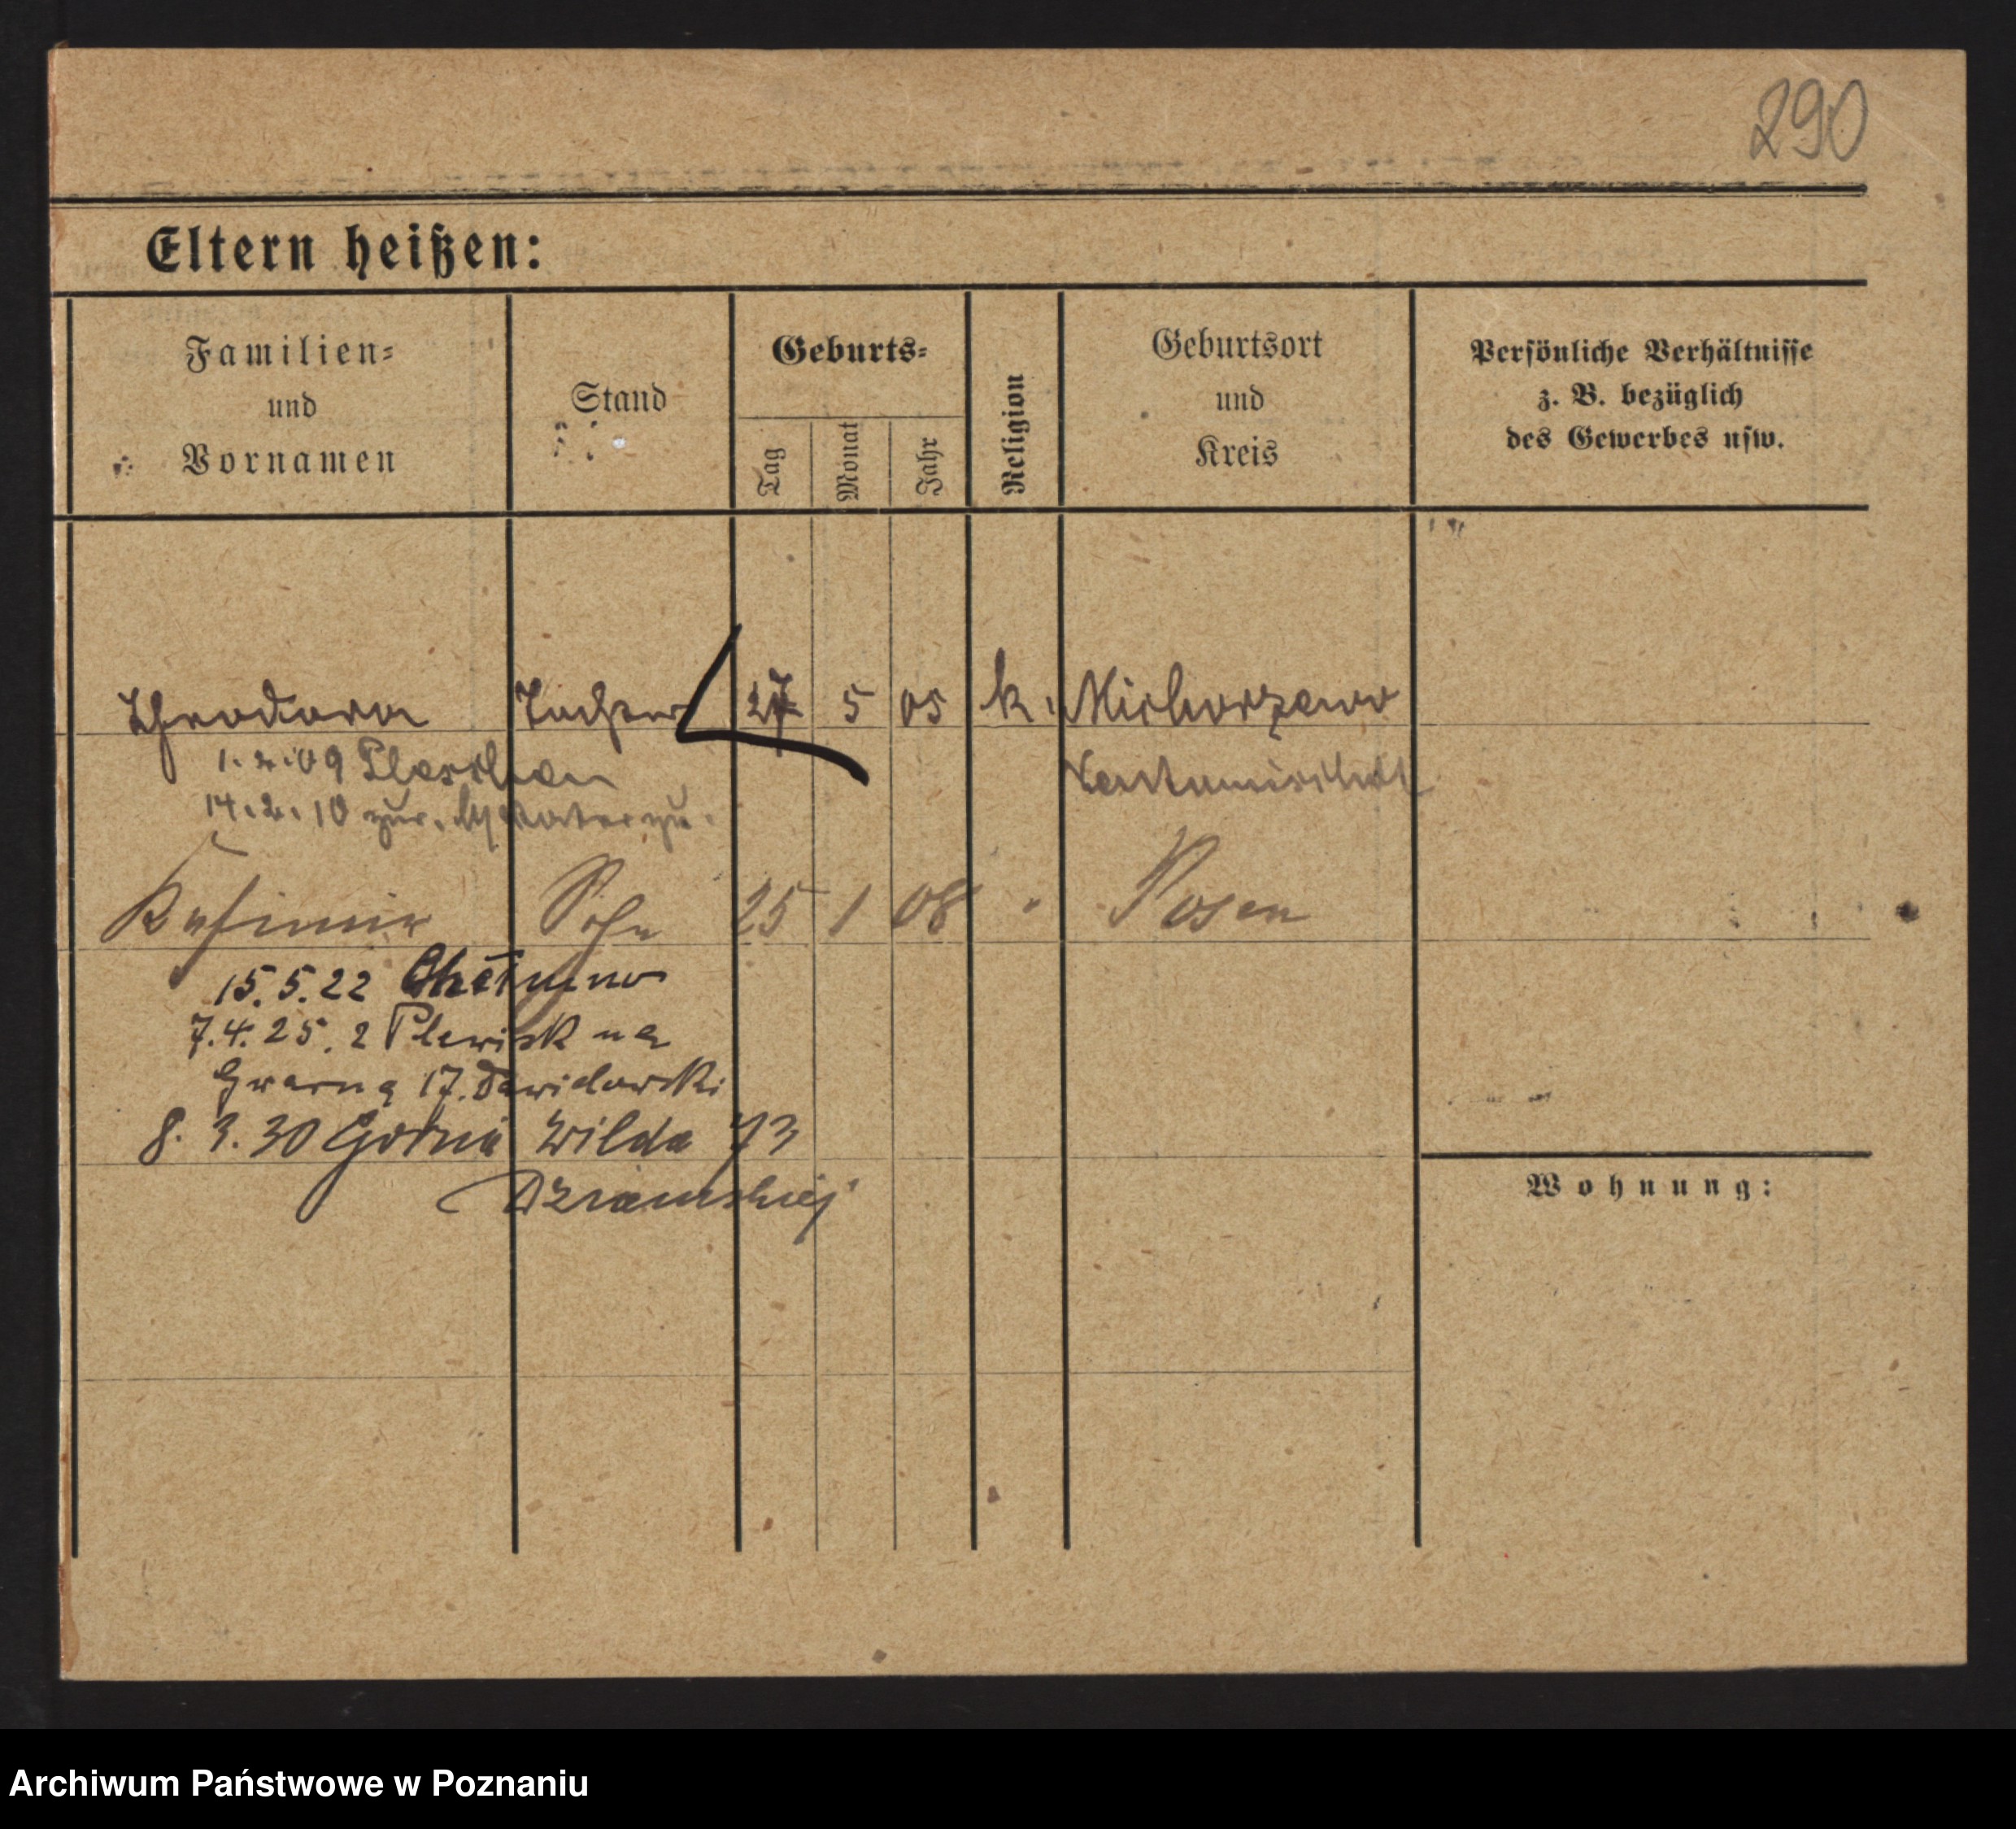 290
Eltern heißen:
Familien-
und
Vornamen
Stand
Geburts-
Tag
Monat
Jahr
Religion
Geburtsort
und
Kreis
Persönliche Verhältnisse
z. B. bezüglich
des Gewerbes usw.
Theodora Tochter 27 5 05 k. Michorzewo
1.2.09
14.2.10 zur. Mutter zu.
Kasimir Sohn 25 1 08 " Posen
15.5.22 Chełmno
7.4.25. z Plewisk na
Gwarna 17. Dawidowski
8. 3. 30 Górna Wilda 73
Dziamskiej
Wohnung:
Archiwum Państwowe w Poznaniu